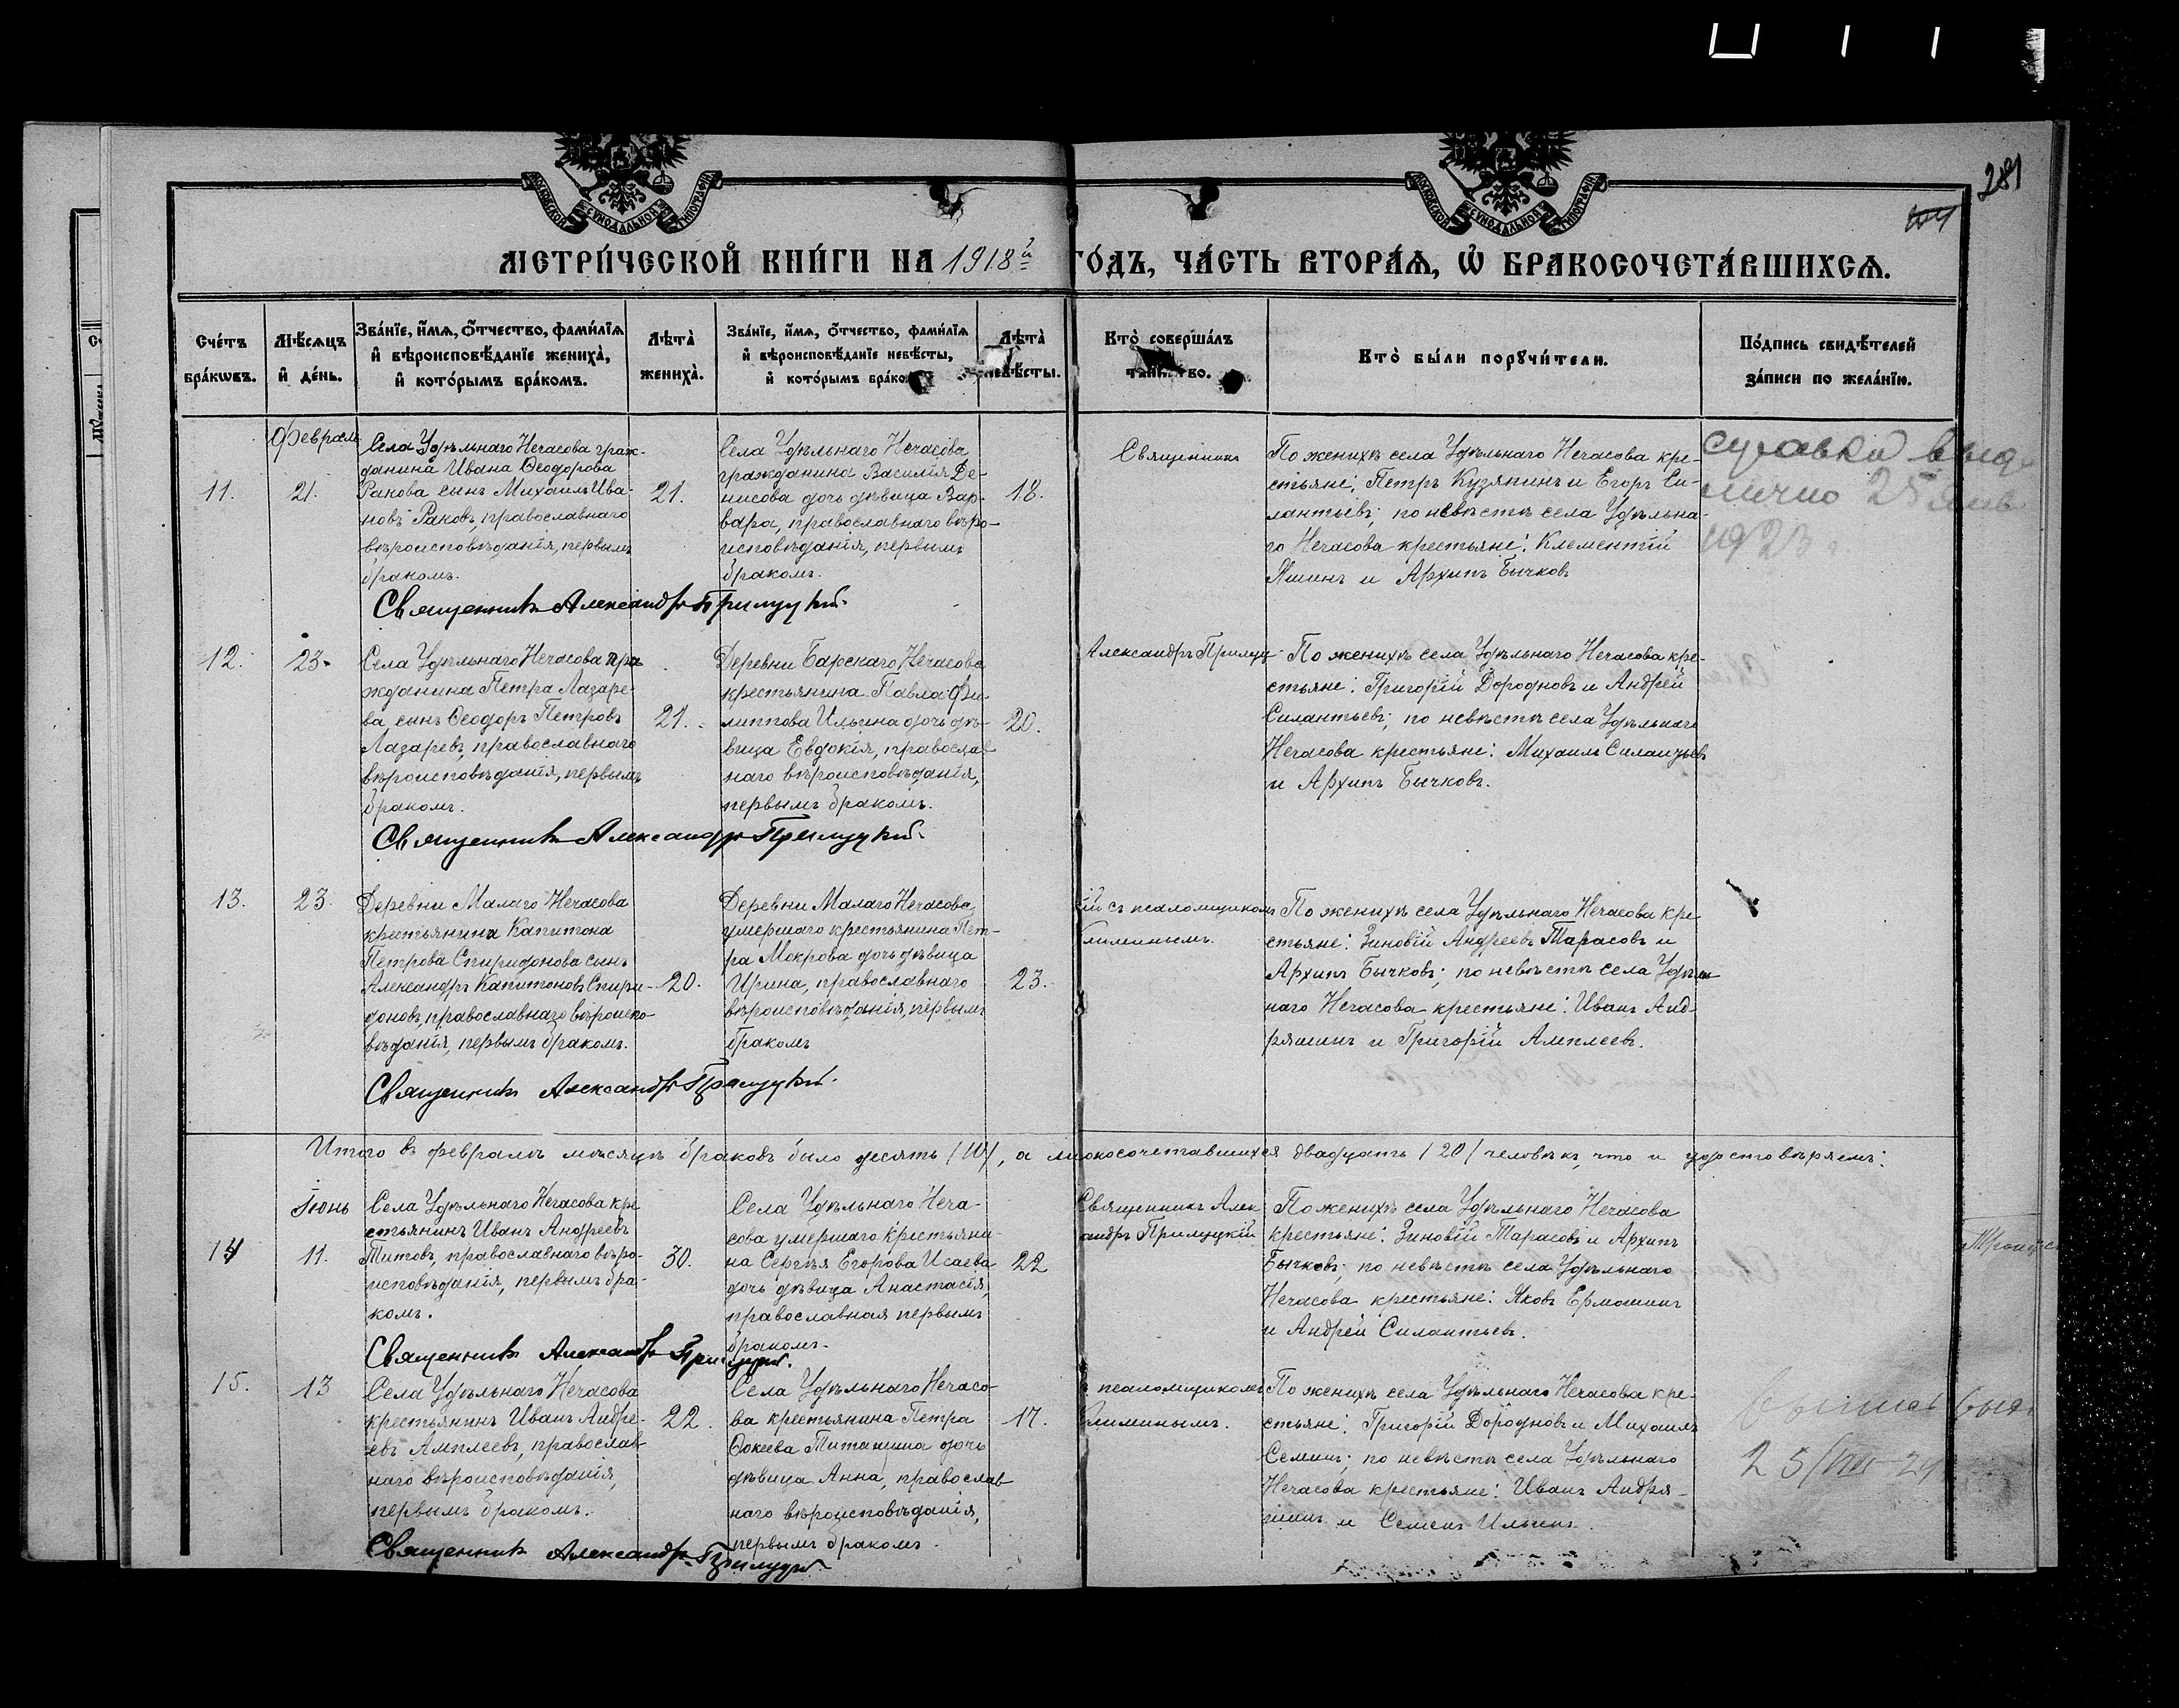 281
МОСКОВСКОЙ СУНОДАЛЬНОЙ ТИПОГРАФІИ
МОСКОВСКОЙ СУНОДАЛЬНОЙ ТИПОГРАФІИ
МЕТРИ́ЧЕСКОЙ КНИ́ГИ НА 1918й ГО́ДЪ, ЧА́СТЬ ВТОРА́Я, Ѡ БРАКОСОЧЕТА́ВШИХСЯ.
Сче́тъ
бра́кѡвъ.
Мѣ́сяцъ
и҆ де́нь.
Зва́нїе, и҆́мя, ѻ҆́тчество, фами́лїя
и҆ вѣроисповѣ́данїе жениха̀,
и҆ кото́рымъ бра́комъ.
Лѣта̀
жениха̀.
Зва́нїе, и҆́мя, ѻ҆́тчество, фами́лїя
и҆ вѣроисповѣ́данїе невѣ́сты,
и҆ кото́рымъ бра́ко
Лѣта̀
невѣ́сты.
Кто̀ соверша́лъ
таинство.
Кто̀ бы́ли порꙋчи́тели.
По́дпись свидѣ́телей
за́писи по жела́нїю.
11.
Февраль
21.
Села Удѣльнаго Нечасова граж-
данина Ивана Ѳеодорова
Ракова сынъ Михаилъ Ива-
новъ Раковъ, православнаго
вѣроисповѣданія, первымъ
бракомъ.
21.
Села Удѣльнаго Нечасова
гражданина Василія Де-
нисова дочь дѣвица Вар-
вара, православнаго вѣро-
исповѣданія, первымъ
бракомъ.
18.
Священник
По женихѣ села Удѣльнаго Нечасова кре-
стьяне: Петръ Кузянинъ и Егоръ Си-
лантьевъ; по невѣстѣ села Удѣльна-
го Нечасова крестьяне: Клементій
Яшинъ и Архипъ Бычковъ
25 янв
1923 г
Священникъ Александръ Прилуцкій.
12.
23.
Села Удѣльнаго Нечасова гра
жданина Петра Лазаре-
ва сынъ Ѳеодоръ Петровъ
Лазаревъ, православнаго
вѣроисповѣданія, первымъ
бракомъ.
21.
Деревни Барскаго Нечасова
крестьянина Павла Фи-
липпова Ильина дочь дѣ-
вица Евдокія, православ-
наго вѣроисповѣданія,
первымъ бракомъ.
20.
Александръ Прилуц-
По женихѣ села Удѣльнаго Нечасова кре-
стьяне: Григорій Дородновъ и Андрей
Силантьевъ; по невѣстѣ села Удѣльнаго
Нечасова крестьяне: Михаилъ Силантьевъ
и Архипъ Бычковъ.
Священникъ Александръ Прилуцкій.
13.
23.
Деревни Малаго Нечасова
крестьянина Капитона
Петрова Спиридонова сынъ
Александръ Капитоновъ Спири-
доновъ, православнаго вѣроиспо-
вѣданія, первымъ бракомъ.
20.
Деревни Малаго Нечасова
умершаго крестьянина Пет-
ра Мокрова дочь дѣвица
Ирина, православнаго
вѣроисповѣданія, первымъ
бракомъ
23.
кій съ псаломщикомъ
Климинымъ.
По женихѣ села Удѣльнаго Нечасова кре
стьяне: Зиновій Андреевъ Тарасовъ и
Архипъ Бычковъ; по невѣстѣ села Удѣль-
наго Нечасова крестьяне: Иванъ Анд-
ряшинъ и Григорій Амплеевъ.
Священникъ Александръ Прилуцкій.
Итого въ февралѣ мѣсяцѣ браковъ было десять /10/, а бракосочетавшихся двадцать /20/ человѣкъ, что и удостовѣряемъ:
14
Іюнь
11.
Села Удѣльнаго Нечасова кре
стьянинъ Иванъ Андреевъ
Титовъ, православнаго вѣро-
исповѣданія, первымъ бра-
комъ.
30.
Села Удѣльнаго Неча-
сова умершаго крестьяни-
на Сергѣя Егорова Исаева
дочь дѣвица Анастасія,
православная первымъ
бракомъ.
22
Священникъ Алек
андръ Прилуцкій
По женихѣ села Удѣльнаго Нечасова
крестьяне: Зиновій Тарасовъ и Архипъ
Бычковъ; по невѣстѣ села Удѣльнаго
Нечасова крестьяне: Яковъ Ермошинъ
и Андрей Силантьевъ.
Священникъ Александръ Прилуцкій.
15.
13
Села Удѣльнаго Нечасова
крестьянинъ Иванъ Андре-
евъ Амплеевъ, православ-
наго вѣроисповѣданія,
первымъ бракомъ.
22.
Села Удѣльнаго Нечасо-
ва крестьянина Петра
Ѳокеева Титанина дочь
дѣвица Анна, православ-
наго вѣроисповѣданія,
первымъ бракомъ.
17.
съ псаломщикомъ
Климинымъ.
По женихѣ села Удѣльнаго Нечасова кре-
стьяне: Григорій Дородновъ и Михаилъ
Семинъ; по невѣстѣ села Удѣльнаго
Нечасова крестьяне: Иванъ Андря-
шинъ и Семенъ Ильинъ.
Священникъ Александръ Прилуцкій.